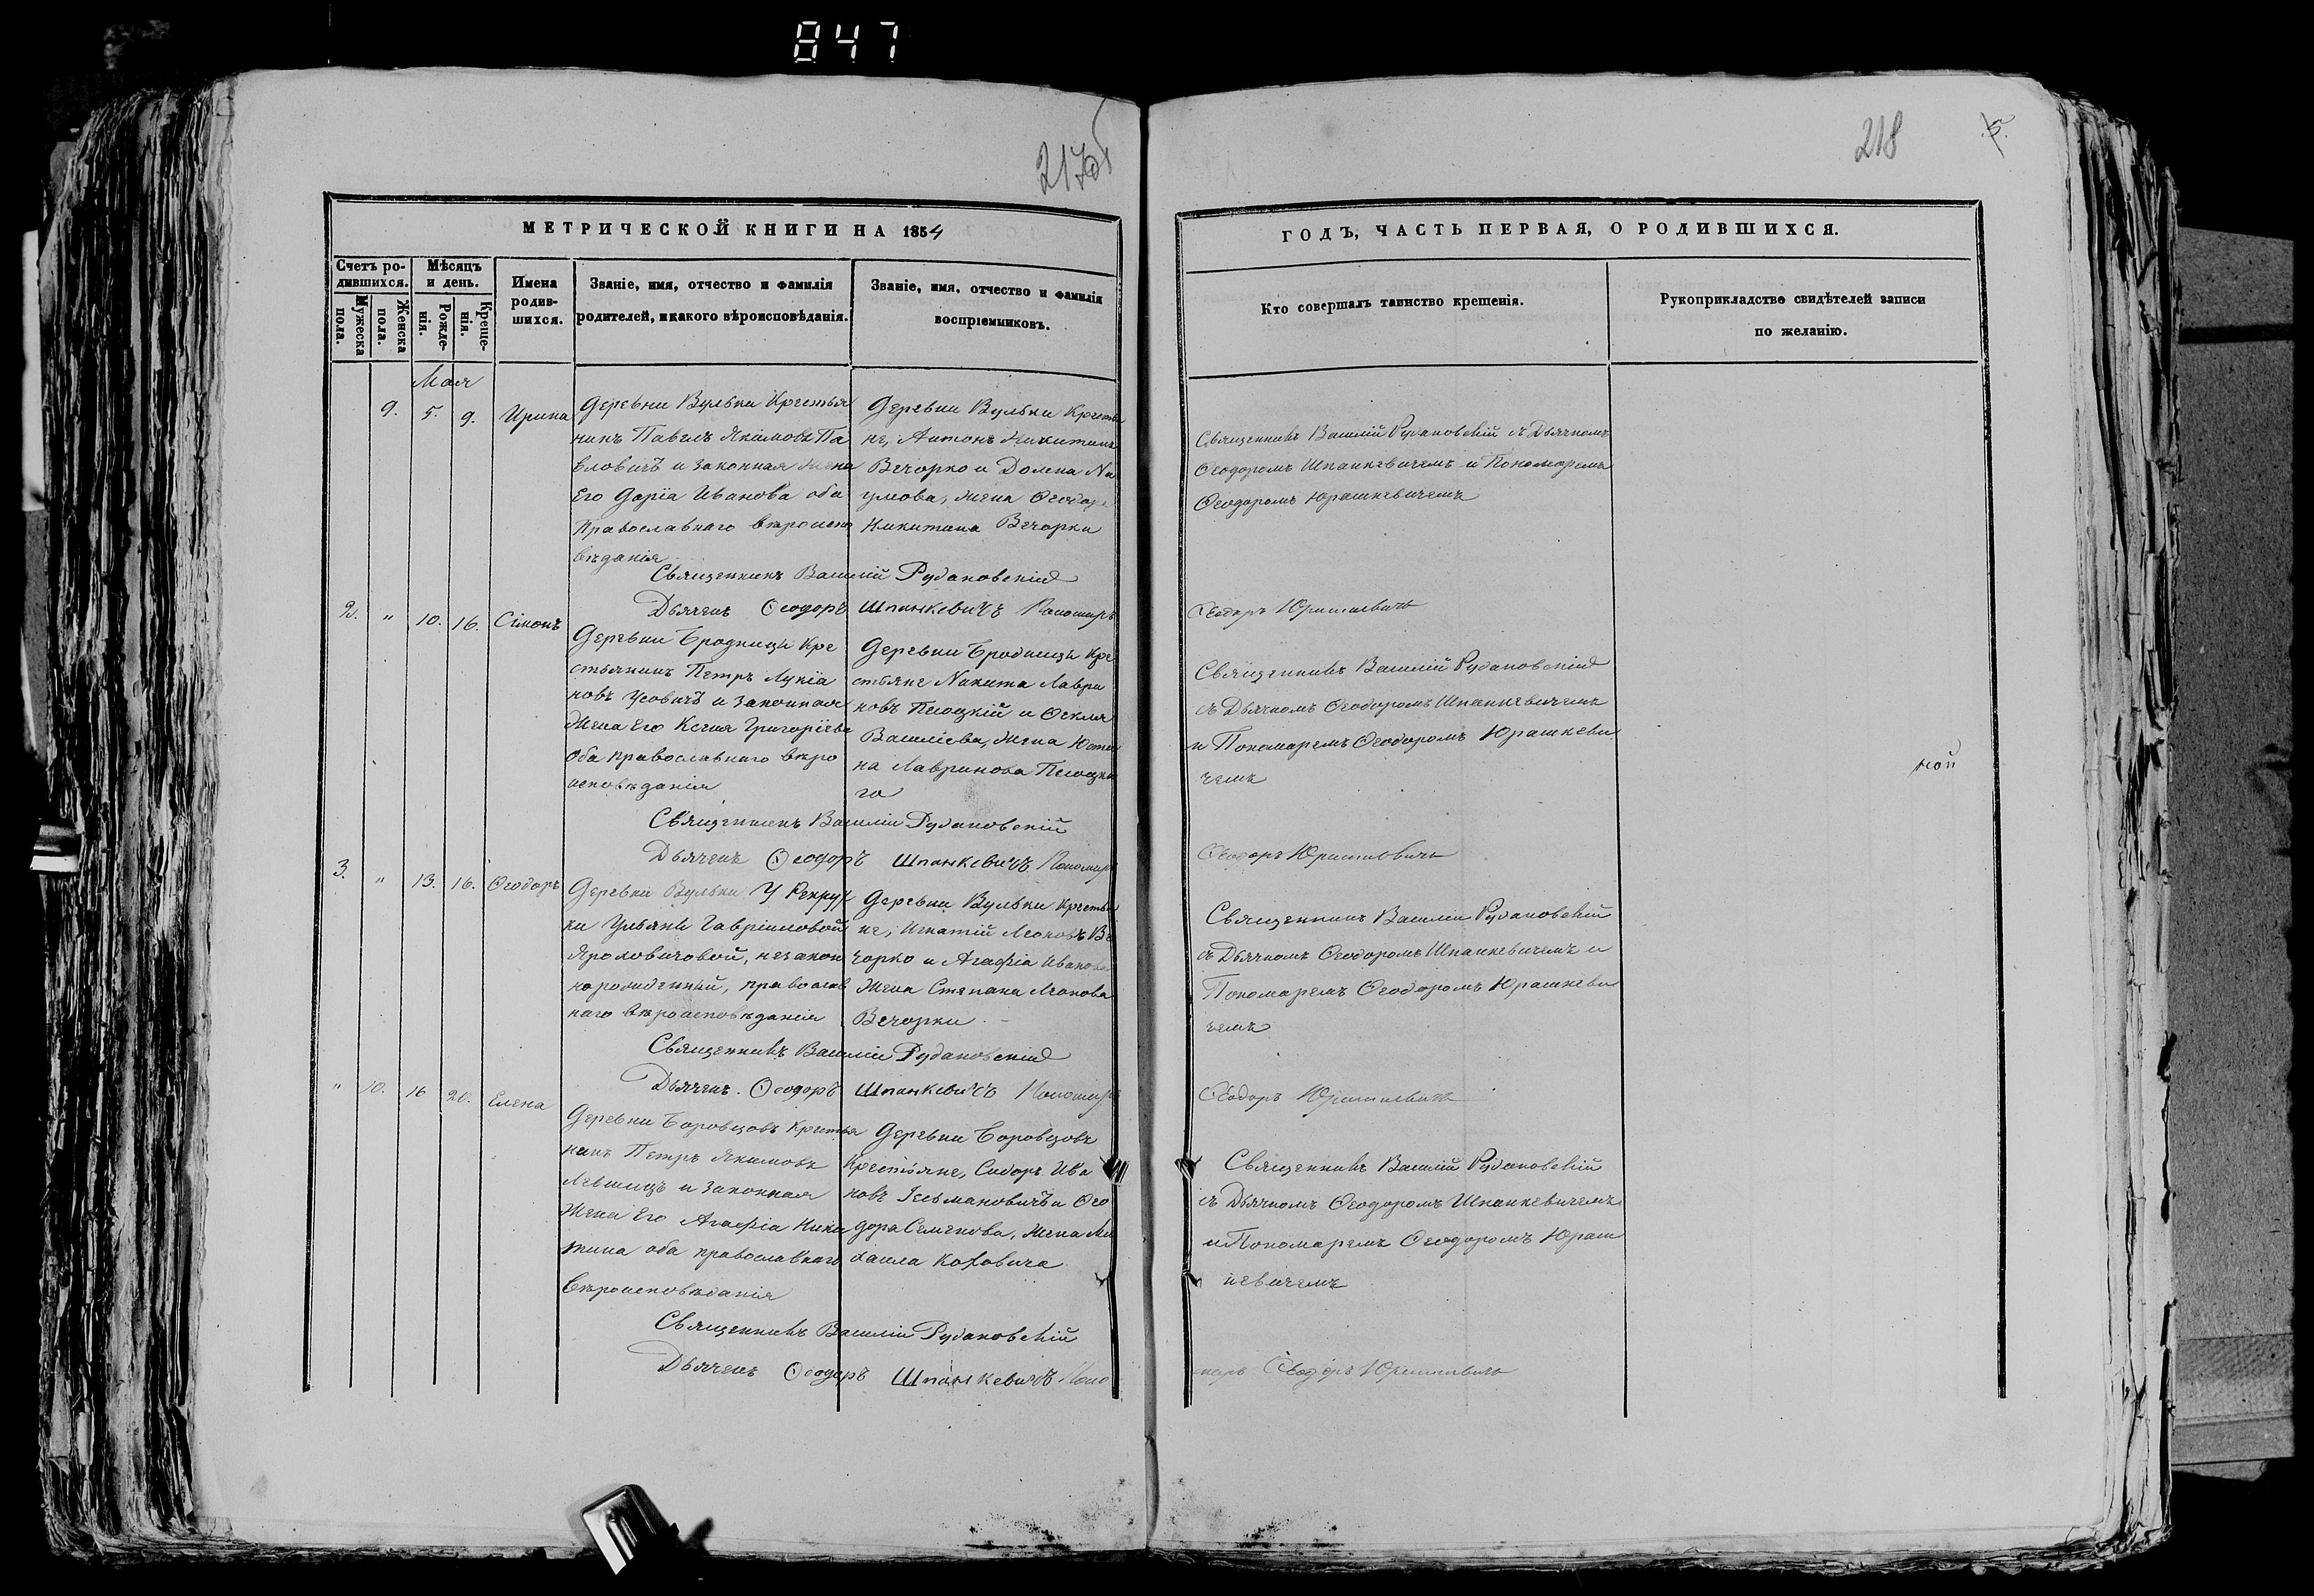 847
217об
218
5.
МЕТРИЧЕСКОЙ КНИГИ НА 1854
ГОДЪ, ЧАСТЬ ПЕРВАЯ, О РОДИВШИХСЯ.
Счетъ ро-
дившихся.
Мужеска
пола.
Женска
пола.
Мѣсяцъ
и день.
Рожде-
нія.
Креще-
нія.
Имена
родив-
шихся.
Званіе, имя, отчество и фамилія
родителей, и какого вѣроисповѣданія.
Званіе, имя, отчество и фамилія
воспріемниковъ.
Кто совершалъ таинство крещенія.
Рукоприкладство свидѣтелей записи
по желанію.
Мая
9. 5. 9. Ирина
Деревни Вульки Крестья
нинъ Павелъ Якимовъ Па
вловичъ и законная жена
Его Дарія Иванова оба
Православнаго вѣроиспо
вѣданія
Деревни Вульки Крестья
не, Антонъ Никитинъ
Вечорко и Домна На
умова, жена Ѳеодора
Никитина Вечорки
Священникъ Василій Рудаковскій съ Дьячкомъ
Ѳеодоромъ Шпанкевичемъ и Пономаремъ
Ѳеодоромъ Юрашкевичемъ
Священникъ Василій Рудаковскій
Дьячекъ Ѳеодоръ Шпанкевичъ Пономарь
Ѳеодоръ Юрашкевичъ
2. " 10. 16. Сімонъ
Деревни Бродницы Кре
стьянинъ Петръ Лукіа
новъ Усовичъ и законная
жена Его Ксенія Григоріева
оба православнаго вѣро
исповѣданія
Деревни Бродницы Кре
стьяне Никита Лаври
новъ Плоцкій и Ѳекла
Василіева, жена Юсти
на Лавринова Плоцка
го
Священникъ Василій Рудаковскій
съ Дьячкомъ Ѳеодоромъ Шпанкевичемъ
и Пономаремъ Ѳеодоромъ Юрашкеви
чемъ
ной
Священникъ Василій Рудаковскій
Дьячекъ Ѳеодоръ Шпанкевичъ Пономарь
Ѳеодоръ Юрашкевичъ
3. " 13. 16. Ѳеодоръ
Деревни Вульки У Рекрут
ки Ульяны Гавріиловой
Ярмоловичовой, незакон
норожденный, православ
наго вѣроисповѣданія
Деревни Вульки Крестья
не, Игнатій Леоновъ Ве
чорко и Агафія Иванова
жена Степана Леонова
Вечорки
Священникъ Василій Рудаковскій
съ Дьячкомъ Ѳеодоромъ Шпанкевичемъ и
Пономаремъ Ѳеодоромъ Юрашкеви
чемъ
Священникъ Василій Рудаковскій
Дьячекъ Ѳеодоръ Шпанкевичъ Пономарь
Ѳеодоръ Юрашкевичъ
" 10. 16 20. Елена
Деревни Боровцовъ Крестья
нинъ Петръ Якимовъ
и законная
жена Его Агафіа Ники
тина оба православнаго
вѣроисповѣданія
Деревни Боровцовъ
Крестьяне, Сидоръ Ива
новъ Гельмановичъ и Ѳео
дора Семенова, жена Ми
хаила Коховича
Священникъ Василій Рудаковскій
съ Дьячкомъ Ѳеодоромъ Шпанкевичемъ
и Пономаремъ Ѳеодоромъ Юраш
кевичемъ
Священникъ Василій Рудаковскій
Дьячекъ Ѳеодоръ Шпанкевичъ Поно
марь Ѳеодоръ Юрашкевичъ